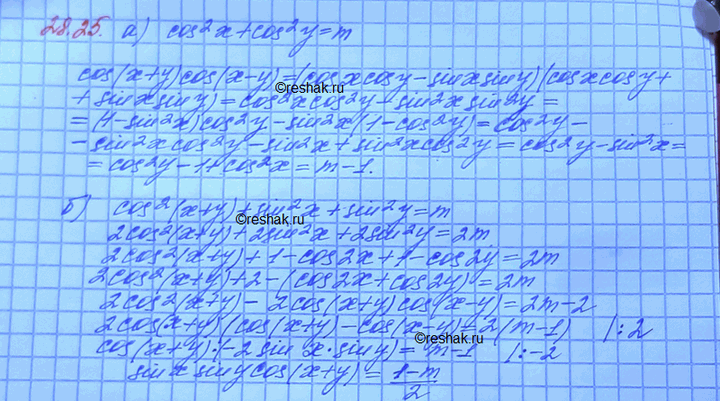 28.25. а) cos²x+cos²y=m
cos(x+y)cos(x-y)=(cosxcosy-sinxsiny)(cosxcosy+
©reshak.ru
+sinxsiny)=cos²xcos²y-sin²xsin²y=
=(1-sin²x)cos²y-sin²x(1-cos²y)=cos²y-
-sin²xcos²y-sin²x+sin²xcos²y=cos²y-sin²x=
=cos²y-1+cos²x=m-1.
б) cos²(x+y)+sin²x+sin²y=m
©reshak.ru
2cos²(x+y)+2sin²x+2sin²y=2m
2cos²(x+y)+1-cos2x+1-cos2y=2m
2cos²(x+y)+2-(cos2x+cos2y)=2m
2cos²(x+y)-2cos(x+y)cos(x-y)=2m-2
2cos(x+y)(cos(x+y)-cos(x-y)=2(m-1) |:2
©reshak.ru
cos(x+y)·(-2sinx·siny)=m-1 |:-2
sinxsinycos(x+y)=\frac{1-m}{2}